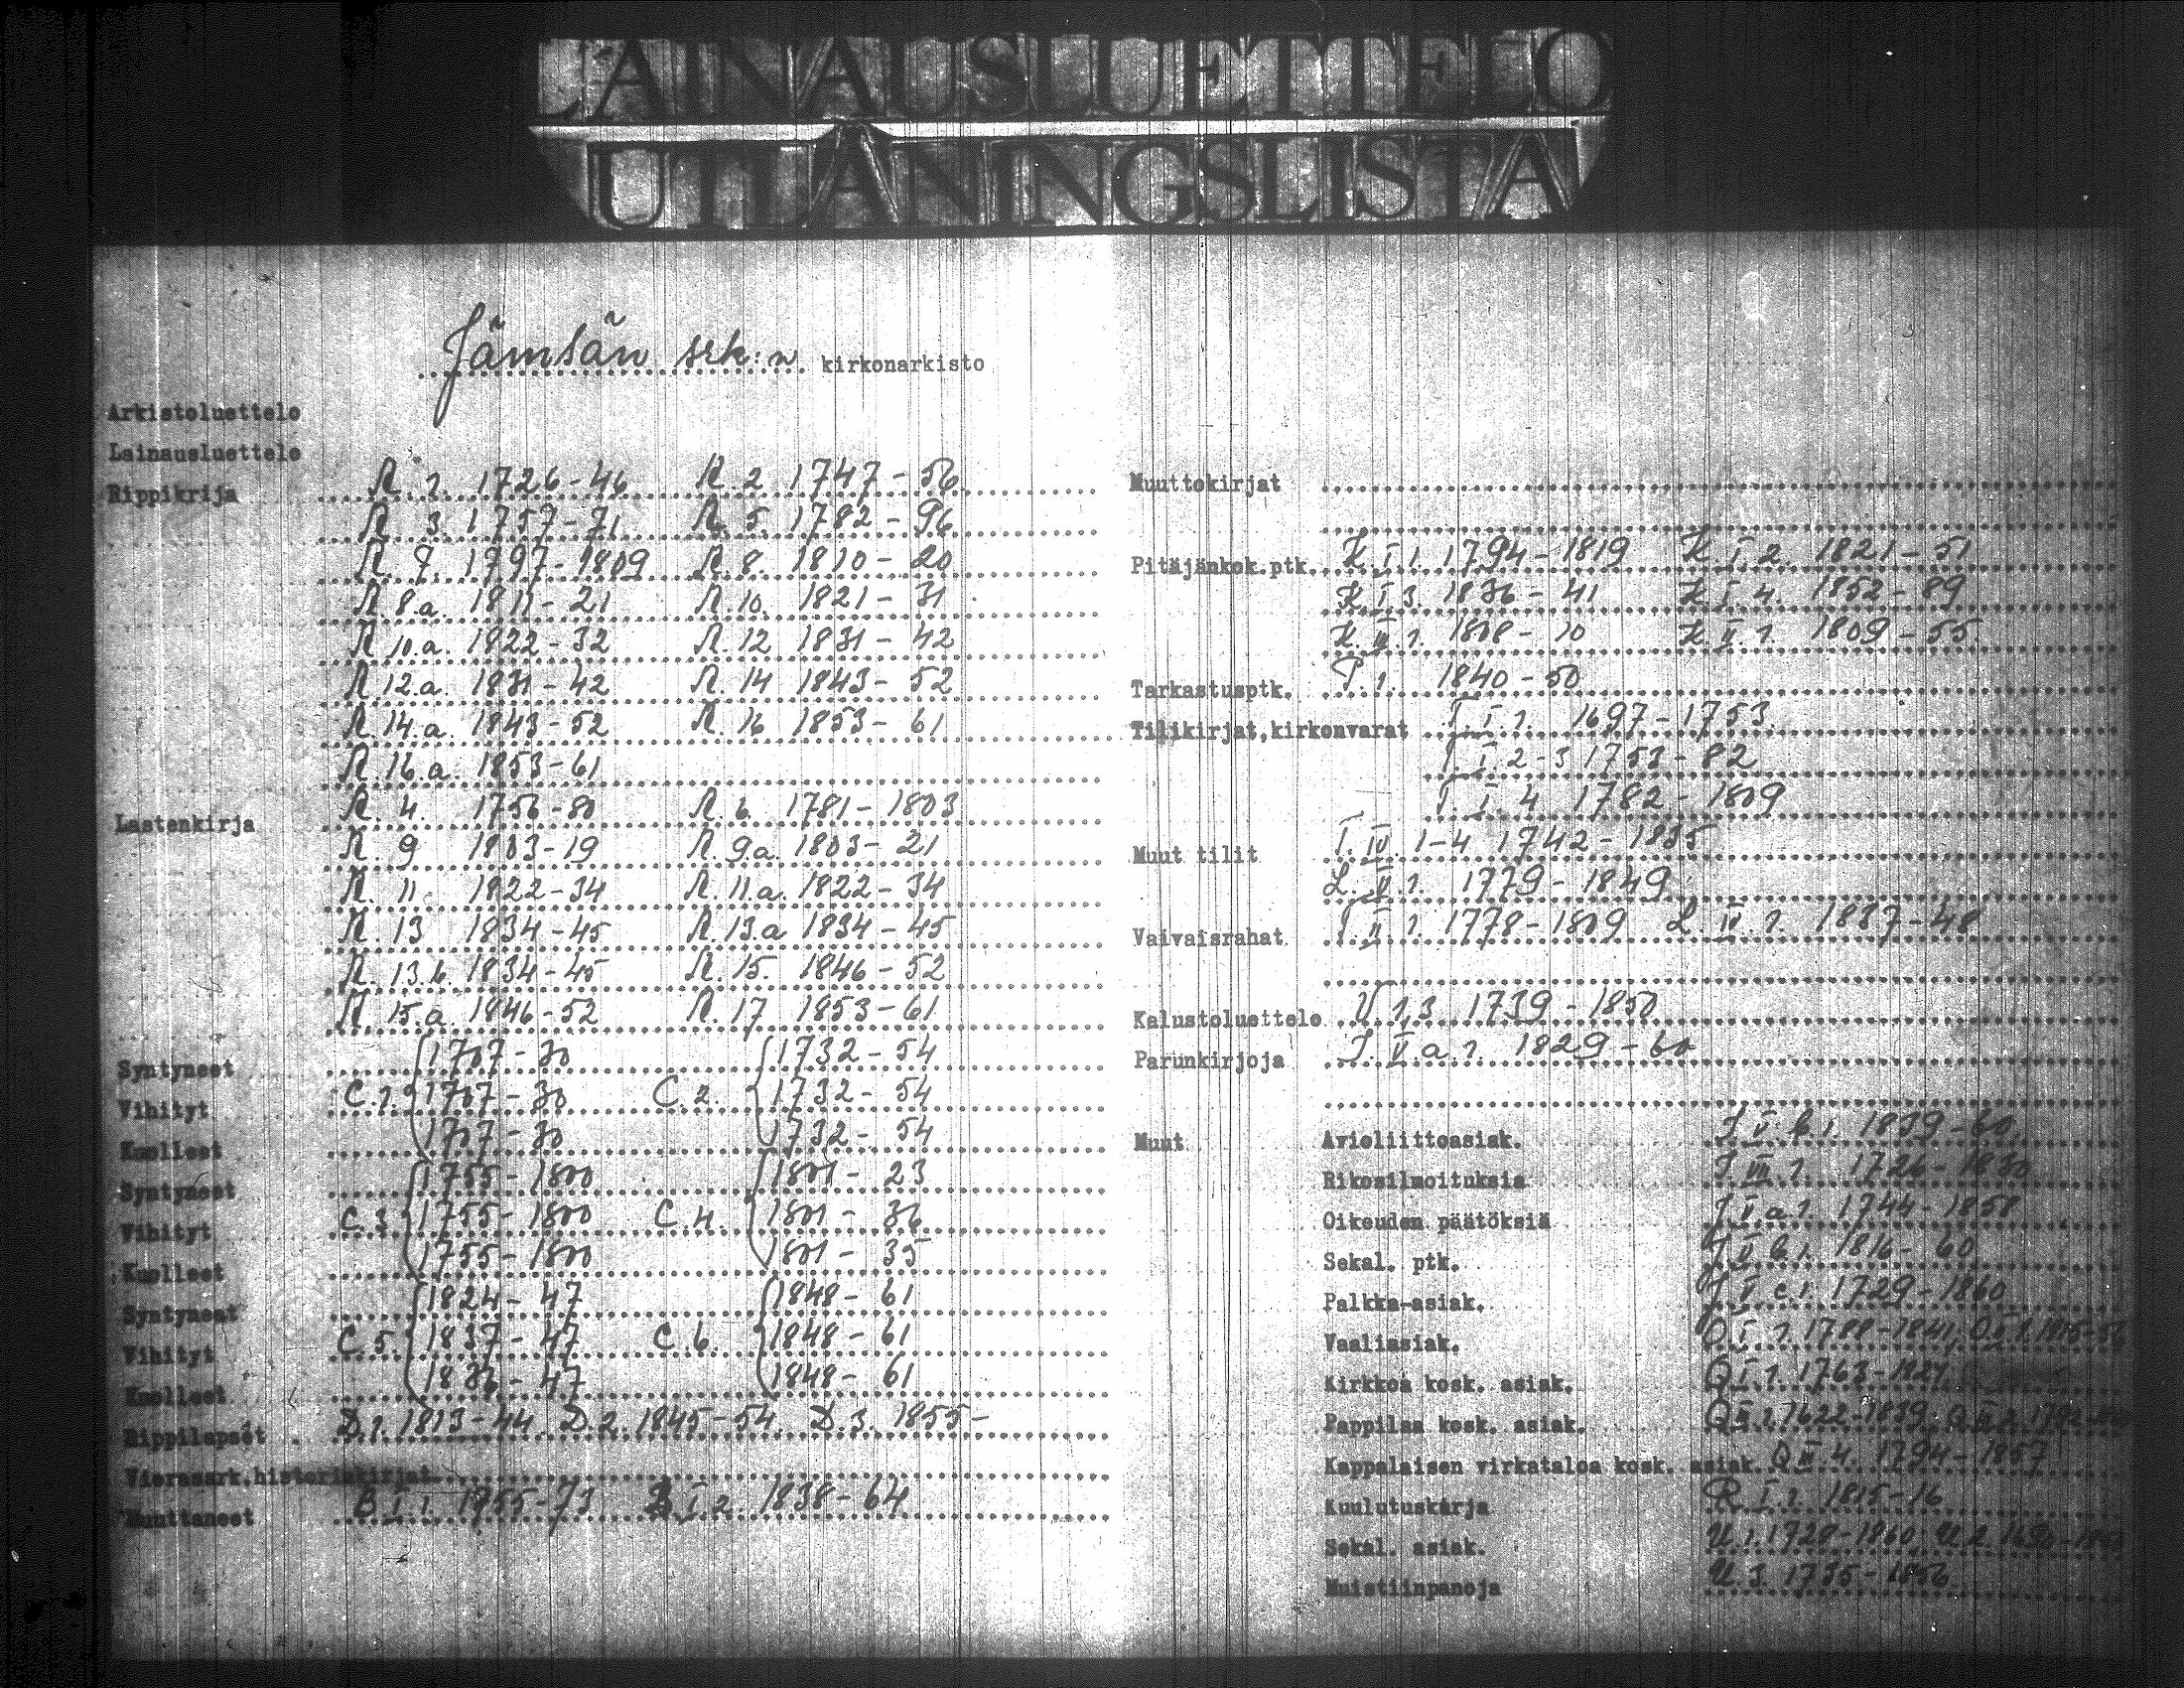 LAINAUSLUETTELO
UTLÅNINGSLISTA
Jämsän srk:n kirkonarkisto
Arkistoluettelo
Lainausluettelo
Rippikrija R. 1. 1726-46 R. 2 1747-56
R. 3. 1757-71 R. 5. 1782-96
R. 7. 1797-1809 R. 8. 1810-20
R. 8.a. 1811-21 R. 10. 1821-31
R. 10.a. 1822-32 R. 12 1831-42
R. 12.a. 1831-42 R. 14 1843-52
R. 14.a. 1843-52 R. 16 1853-61
R. 16.a. 1853-61
Lastenkirja R. 4. 1756-80 R. 6. 1781-1803
R. 9 1803-19 R. 9.a. 1803-21
R. 11. 1822-34 R. 11.a. 1822-34
R. 13 1834-45 R. 13.a 1834-45
R. 13.b. 1834-45 R. 15. 1846-52
R. 15.a. 1846-52 R. 17 1853-61
Syntyneet 1707-30 1732-54
Vihityt C.1. 1707-30 C.2. 1732-54
Kuolleet 1707-30 1732-54
Syntyneet 1755-1800 1801-23
Vihityt C.3. 1755-1800 C.4. 1801-36
Kuolleet 1755-1800 1801-35
Syntyneet 1824-47 1848-61
Vihityt C.5. 1837-47 C.6. 1848-61
Kuolleet 1836-47 1848-61
Rippilapset D.1. 1813-44. D.2. 1845-54. D.3. 1855-
Vierasark.historiakirjat
Muuttaneet B.I.1. 1755-73 B.I.2. 1838-64
Muuttokirjat
Pitäjänkok.ptk. K.I.1. 1794-1819 K.I.2. 1821-51
K.I.3. 1836-41 K.I.4. 1852-89
K.III.1. 1808-10 K.II.1. 1809-55.
Tarkastusptk. P.1. 1840-50
Tilikirjat,kirkonvarat T.I.1. 1697-1753.
T.I.2-3 1753-82
T.I.4 1782-1809
Muut tilit T.IV.1-4 1742-1835
L.V.1. 1779-1849
Vaivaisrahat T.II.1. 1778-1809 L.IV.1. 1837-48
Kalustoluettelo V.1,3. 1739-1850
Parunkirjoja J.V.a.1. 1829-60
Muut Avioliittoasiak. J.V.b.1. 1839-60
Rikosilmoituksia J.VII.1. 1726-1830
Oikeuden päätöksiä J.V.a.1. 1744-1858
Sekal. ptk. 1816-60
Palkka-asiak. 1729-1860
Vaaliasiak. O.I.1. 1788-1841,
Kirkkoa kosk. asiak. Q.I.1. 1763-
Pappilaa kosk. asiak. 1622-1839.
Kappalaisen virkataloa kosk. asiak. Q.III.4. 1794-1857
Kuulutuskirja R.I.1. 1815-16
Sekal. asiak. U.1. 1728-1860. U.2.
Muistiinpanoja U.3. 1735-1856